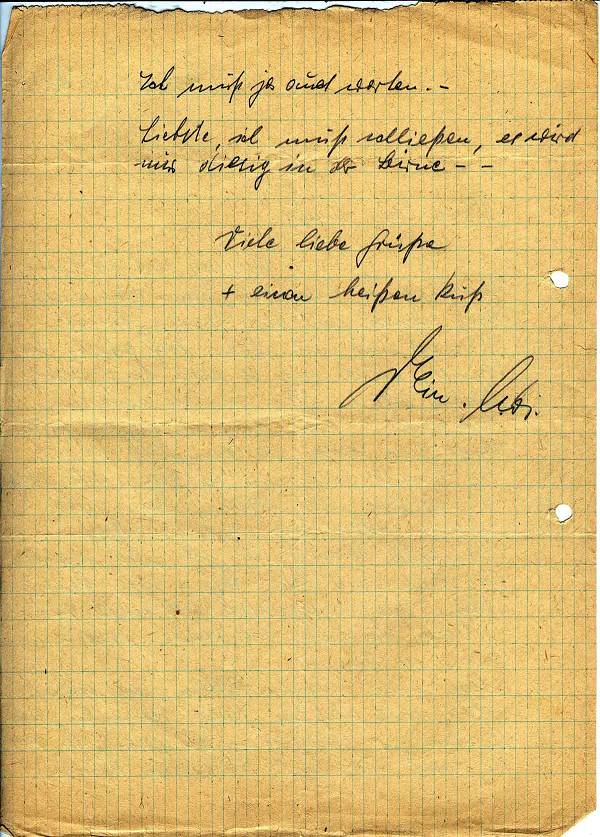 Ich muß ja auch warten. –
Liebste, ich muß schließen, es wird
mir diesig in der Birne – –
Viele liebe Grüße
+ einen heißen Kuß